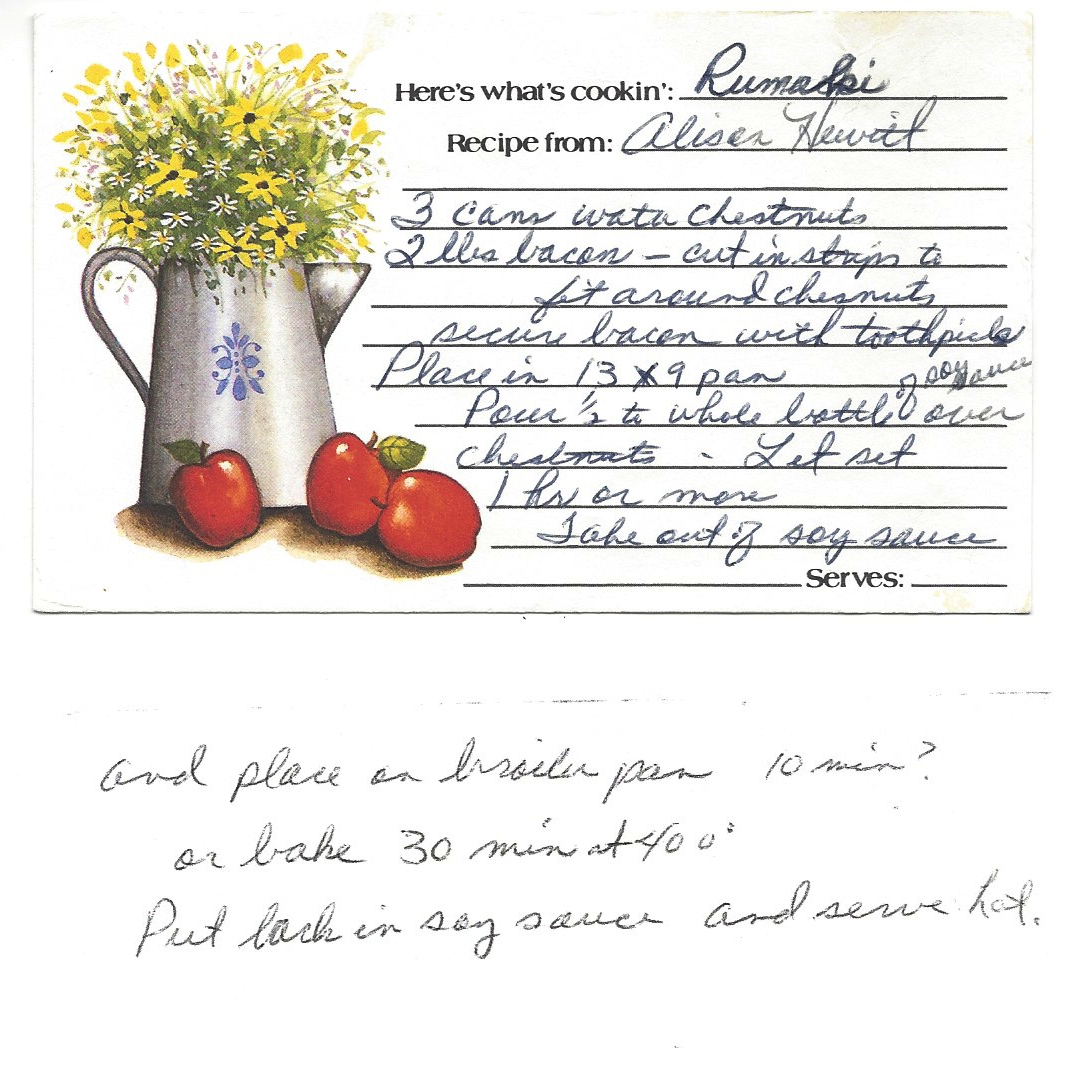 Here's what's cookin': Rumaki
Recipe from: Alison Hewitt
3 cans water chestnuts
2 lbs bacon - cut in strips to
fit around chesnuts
secure bacon with toothpicks
Place in 13 x 9 pan
of soy sauce
Pour ½ to whole bottle over
chestnuts - Let set
1 hr or more
Take out of soy sauce
Serves:
and place on broiler pan 10 min?
or bake 30 min at 400°
Put back in soy sauce and serve hot.